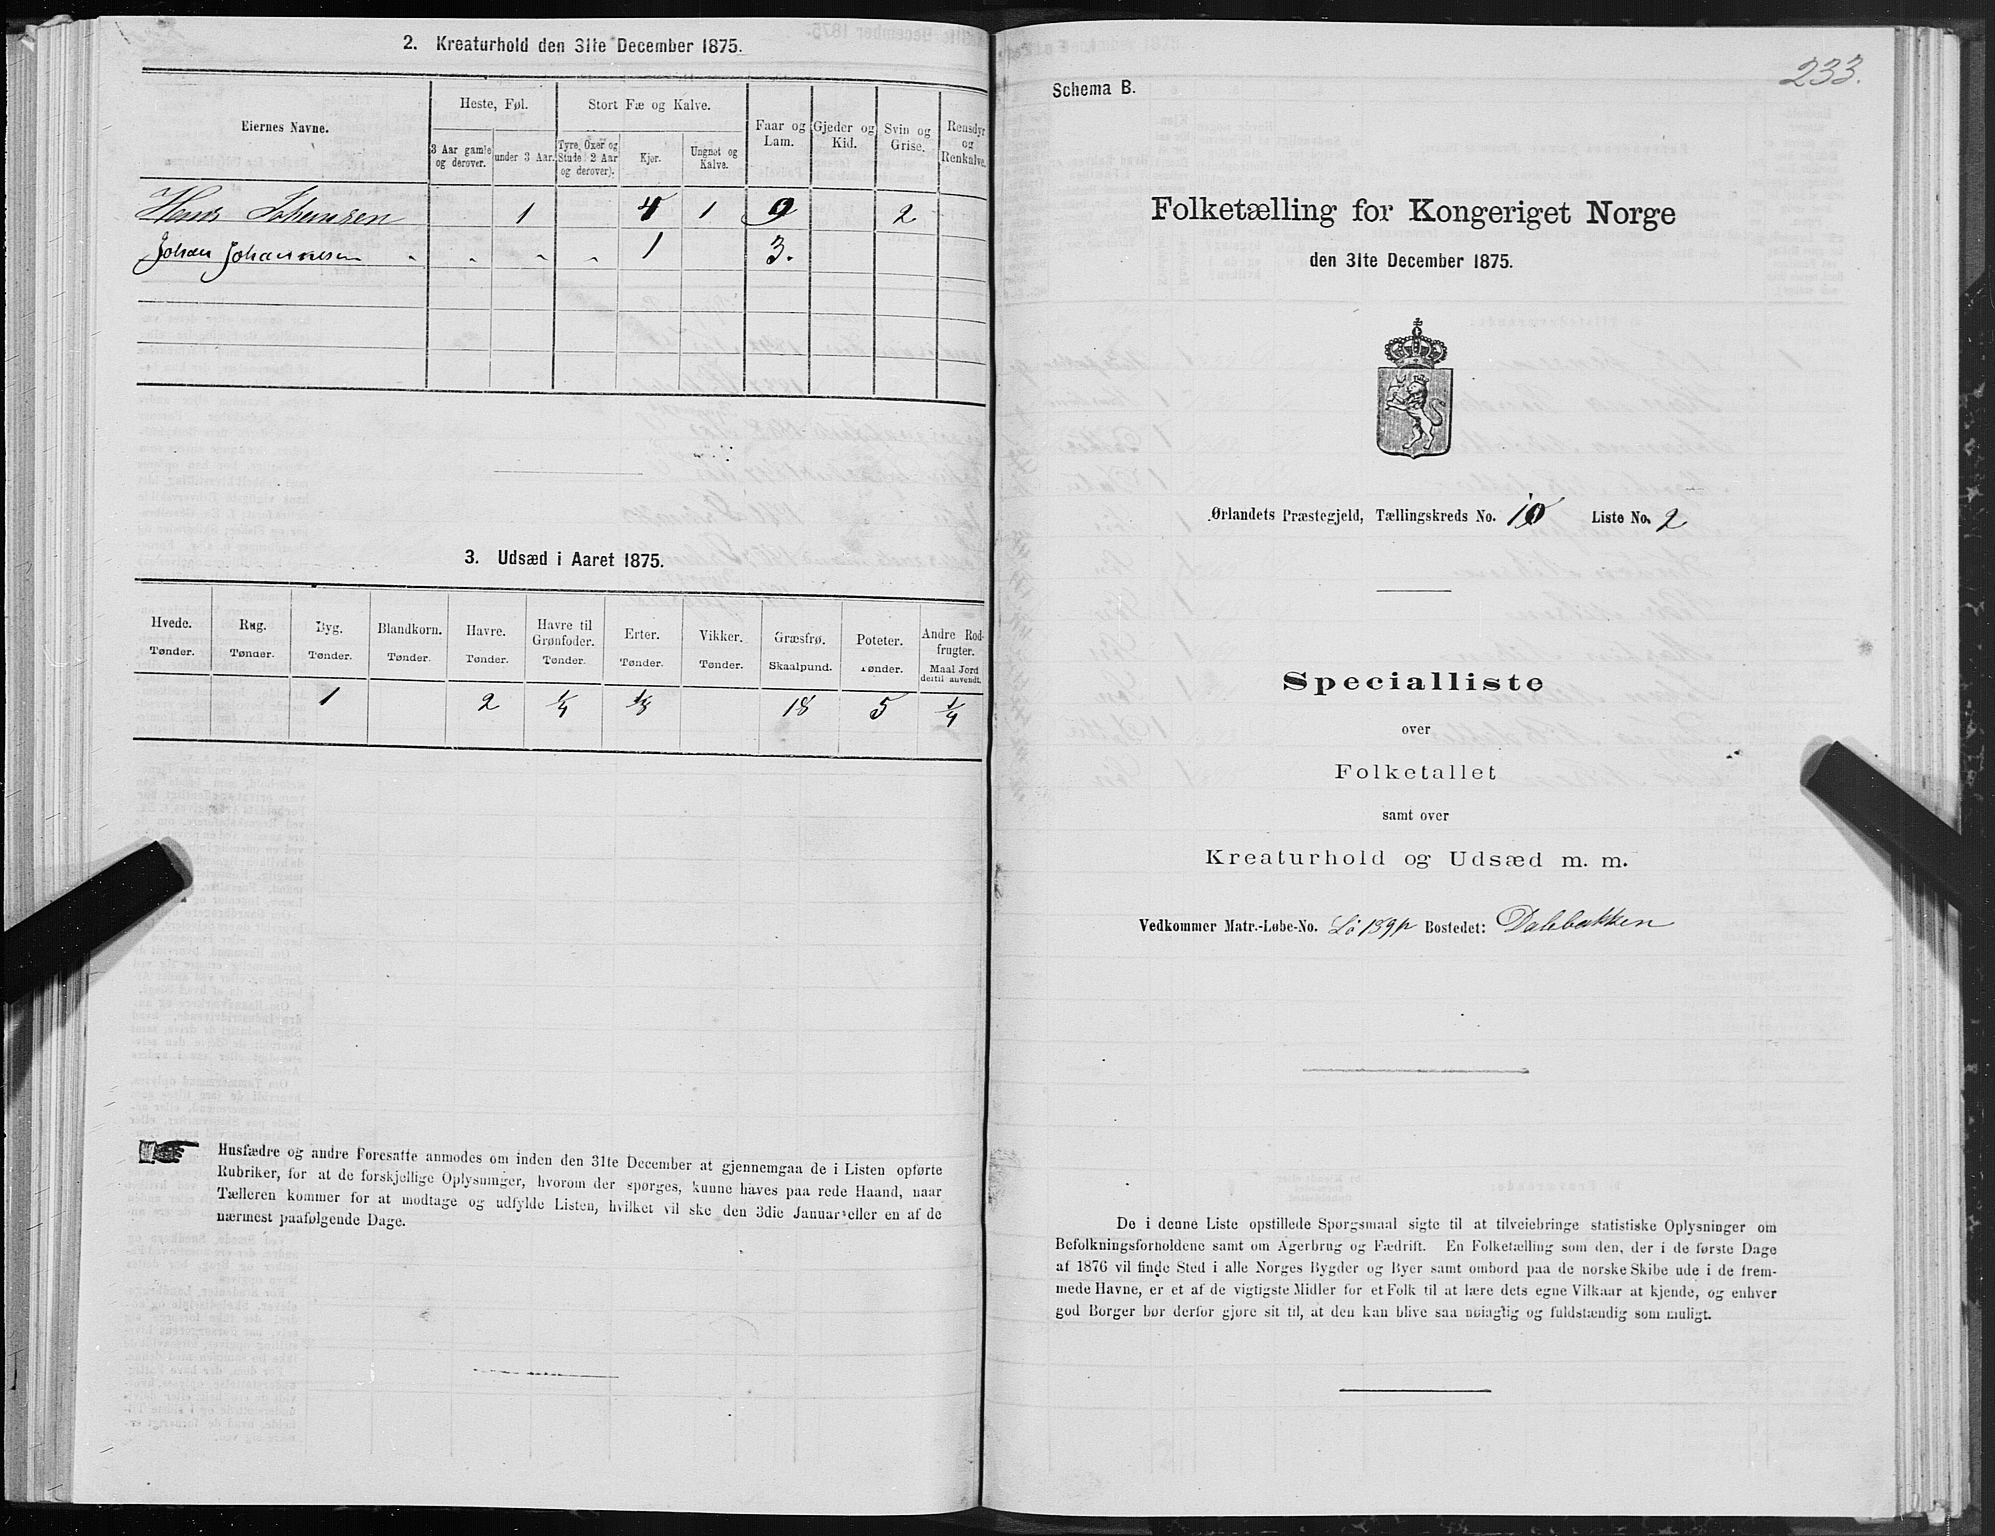 2. Kreaturhold den 31te December 1875.
Eiernes Navne.
Heste, Føl.
Stort Fæ og Kalve.
Faar og Lam.
Gjeder og Kid.
Svin og Grise.
Rensdyr og Renkalve.
3 Aar gamle og derover.
under 3 Aar.
Tyre, Oxer og Stude (2 Aar og derover).
Kjør.
Ungnøt og Kalve.
Hans Johansen 1 4 1 9 2
Johan Johannesen " " " " 1 3.
3. Udsæd i Aaret 1875.
Hvede. Rug. Byg. Blandkorn. Havre. Havre til Grønfoder. Erter. Vikker. Græsfrø. Poteter. Andre Rodfrugter.
Tønder. Tønder. Tønder. Tønder. Tønder. Tønder. Tønder. Tønder. Skaalpund. Tønder. Maal Jord dertil anvendt.
1 2 1/4 1/8 18 5 1/4
Husfædre og andre Foresatte anmodes om inden den 31te December at gjennemgaa de i Listen opførte
Rubriker, for at de forskjellige Oplysninger, hvorom der spørges, kunne haves paa rede Haand, naar
Tælleren kommer for at modtage og udfylde Listen, hvilket vil ske den 3die Januar eller en af de
nærmest paafølgende Dage.
233.
Schema B.
Folketælling for Kongeriget Norge
den 31te December 1875.
Ørlandets Præstegjeld, Tællingskreds No. 10 Liste No. 2
Specialliste
over
Folketallet
samt over
Kreaturhold og Udsæd m. m.
Vedkommer Matr.-Løbe-No. Lö 139p Bostedet: Dalebakken
De i denne Liste opstillede Spørgsmaal sigte til at tilveiebringe statistiske Oplysninger om
Befolkningsforholdene samt om Agerbrug og Fædrift. En Folketælling som den, der i de første Dage
af 1876 vil finde Sted i alle Norges Bygder og Byer samt ombord paa de norske Skibe ude i de frem-
mede Havne, er et af de vigtigste Midler for et Folk til at lære dets egne Vilkaar at kjende, og enhver
god Borger bør derfor gjøre sit til, at den kan blive saa nøiagtig og fuldstændig som muligt.